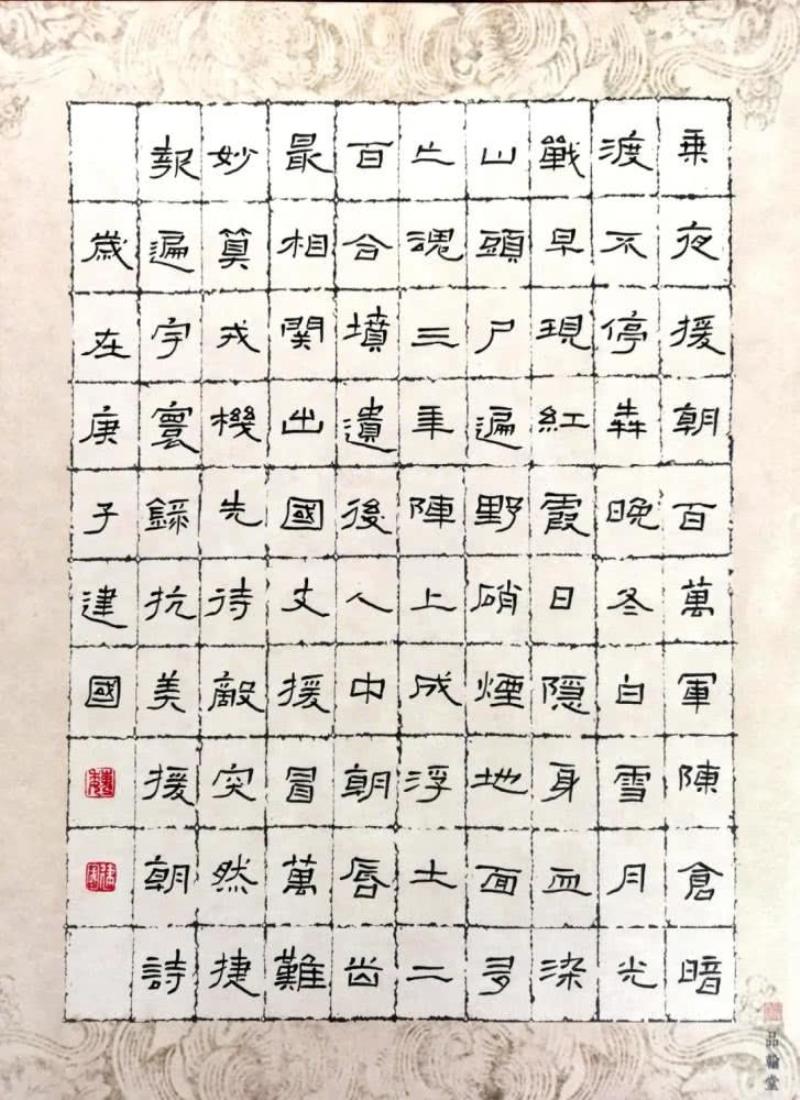 乗夜援朝百萬軍陳倉暗
渡不停奔晚冬白雪月光
戰早現紅霞日隱身血染
山頭尸遍野硝煙地面多
亡魂三年陣上成浮土二
百合墳遺後人中朝唇齿
最相関出國支援冒萬難
妙算戎機先待敵突然捷
報遍宇寰錄抗美援朝詩
歲在庚子建國
品翰堂